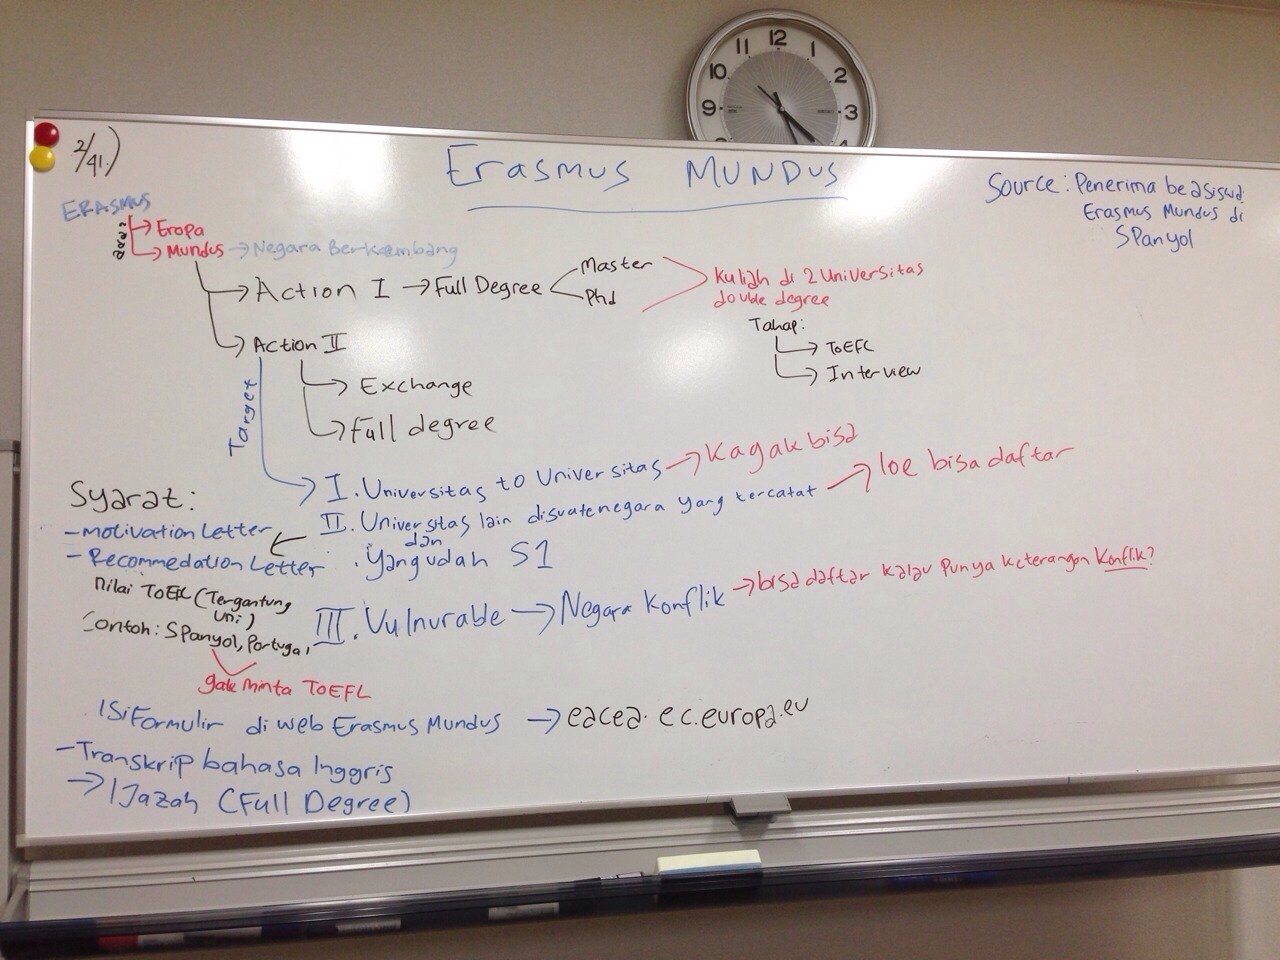 2/41.)
Erasmus MUNDUS
Source: Penerima beasiswa
Erasmus Mundus di
SPanyol
ERASMUS
Eropa
Mundus → Negara Berkembang
Action I → Full Degree
Master
Phd
Kuliah di 2 Universitas
double degree
Tahap:
TOEFL
Interview
Action II
Exchange
Full degree
Target
I. Universitas to Universitas → Kagak bisa
II. Universitas lain disuatenegara yang tercatat → loe bisa daftar
dan
. Yang udah S1
III. Vulnurable → Negara Konflik → bisa daftar kalau Punya keterangan Konflik?
Syarat:
- Motivation Letter
- Recommedation Letter
nilai TOEFL (Tergantung
Uni)
Contoh: SPanyol, Portugal
gak minta TOEFL
ISi Formulir di web Erasmus Mundus → eacea.ec.europa.eu
- Transkrip bahasa Inggris
→ IJazah (Full Degree)
11 12 1
10 2
9 3